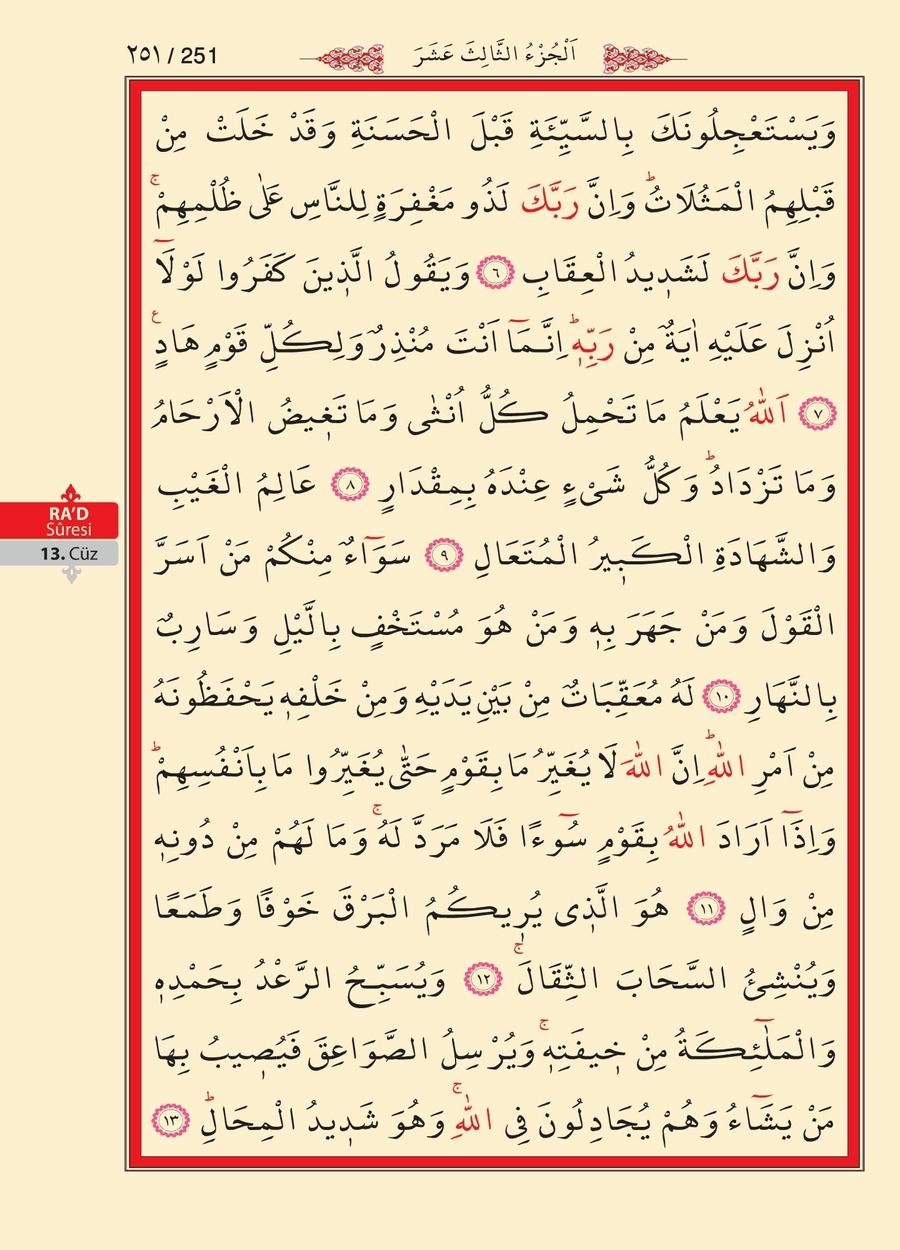 ٢٥١ / 251
اَلْجُزْءُ الثَّالِثَ عَشَرَ
وَيَسْتَعْجِلُونَكَ بِالسَّيِّئَةِ قَبْلَ الْحَسَنَةِ وَقَدْ خَلَتْ مِنْ
قَبْلِهِمُ الْمَثُلَاتُۜ وَاِنَّ رَبَّكَ لَذُو مَغْفِرَةٍ لِلنَّاسِ عَلٰى ظُلْمِهِمْۚ
وَاِنَّ رَبَّكَ لَشَد۪يدُ الْعِقَابِ ﴿٦﴾ وَيَقُولُ الَّذ۪ينَ كَفَرُوا لَوْلَٓا
اُنْزِلَ عَلَيْهِ اٰيَةٌ مِنْ رَبِّه۪ۜ اِنَّمَٓا اَنْتَ مُنْذِرٌ وَلِكُلِّ قَوْمٍ هَادٍ۟
﴿٧﴾ اَللّٰهُ يَعْلَمُ مَا تَحْمِلُ كُلُّ اُنْثٰى وَمَا تَغ۪يضُ الْاَرْحَامُ
وَمَا تَزْدَادُۜ وَكُلُّ شَيْءٍ عِنْدَهُ بِمِقْدَارٍ ﴿٨﴾ عَالِمُ الْغَيْبِ
وَالشَّهَادَةِ الْكَب۪يرُ الْمُتَعَالِ ﴿٩﴾ سَوَٓاءٌ مِنْكُمْ مَنْ اَسَرَّ
الْقَوْلَ وَمَنْ جَهَرَ بِه۪ وَمَنْ هُوَ مُسْتَخْفٍ بِالَّيْلِ وَسَارِبٌ
بِالنَّهَارِ ﴿١٠﴾ لَهُ مُعَقِّبَاتٌ مِنْ بَيْنِ يَدَيْهِ وَمِنْ خَلْفِه۪ يَحْفَظُونَهُ
مِنْ اَمْرِ اللّٰهِۜ اِنَّ اللّٰهَ لَا يُغَيِّرُ مَا بِقَوْمٍ حَتّٰى يُغَيِّرُوا مَا بِاَنْفُسِهِمْۜ
وَاِذَٓا اَرَادَ اللّٰهُ بِقَوْمٍ سُٓوءًا فَلَا مَرَدَّ لَهُۚ وَمَا لَهُمْ مِنْ دُونِه۪
مِنْ وَالٍ ﴿١١﴾ هُوَ الَّذ۪ى يُر۪يكُمُ الْبَرْقَ خَوْفًا وَطَمَعًا
وَيُنْشِئُ السَّحَابَ الثِّقَالَۚ ﴿١٢﴾ وَيُسَبِّحُ الرَّعْدُ بِحَمْدِه۪
وَالْمَلٰٓئِكَةُ مِنْ خ۪يفَتِه۪ۚ وَيُرْسِلُ الصَّوَاعِقَ فَيُص۪يبُ بِهَا
مَنْ يَشَٓاءُ وَهُمْ يُجَادِلُونَ فِى اللّٰهِۚ وَهُوَ شَد۪يدُ الْمِحَالِۜ ﴿١٣﴾
RA’D
Sûresi
13. Cüz